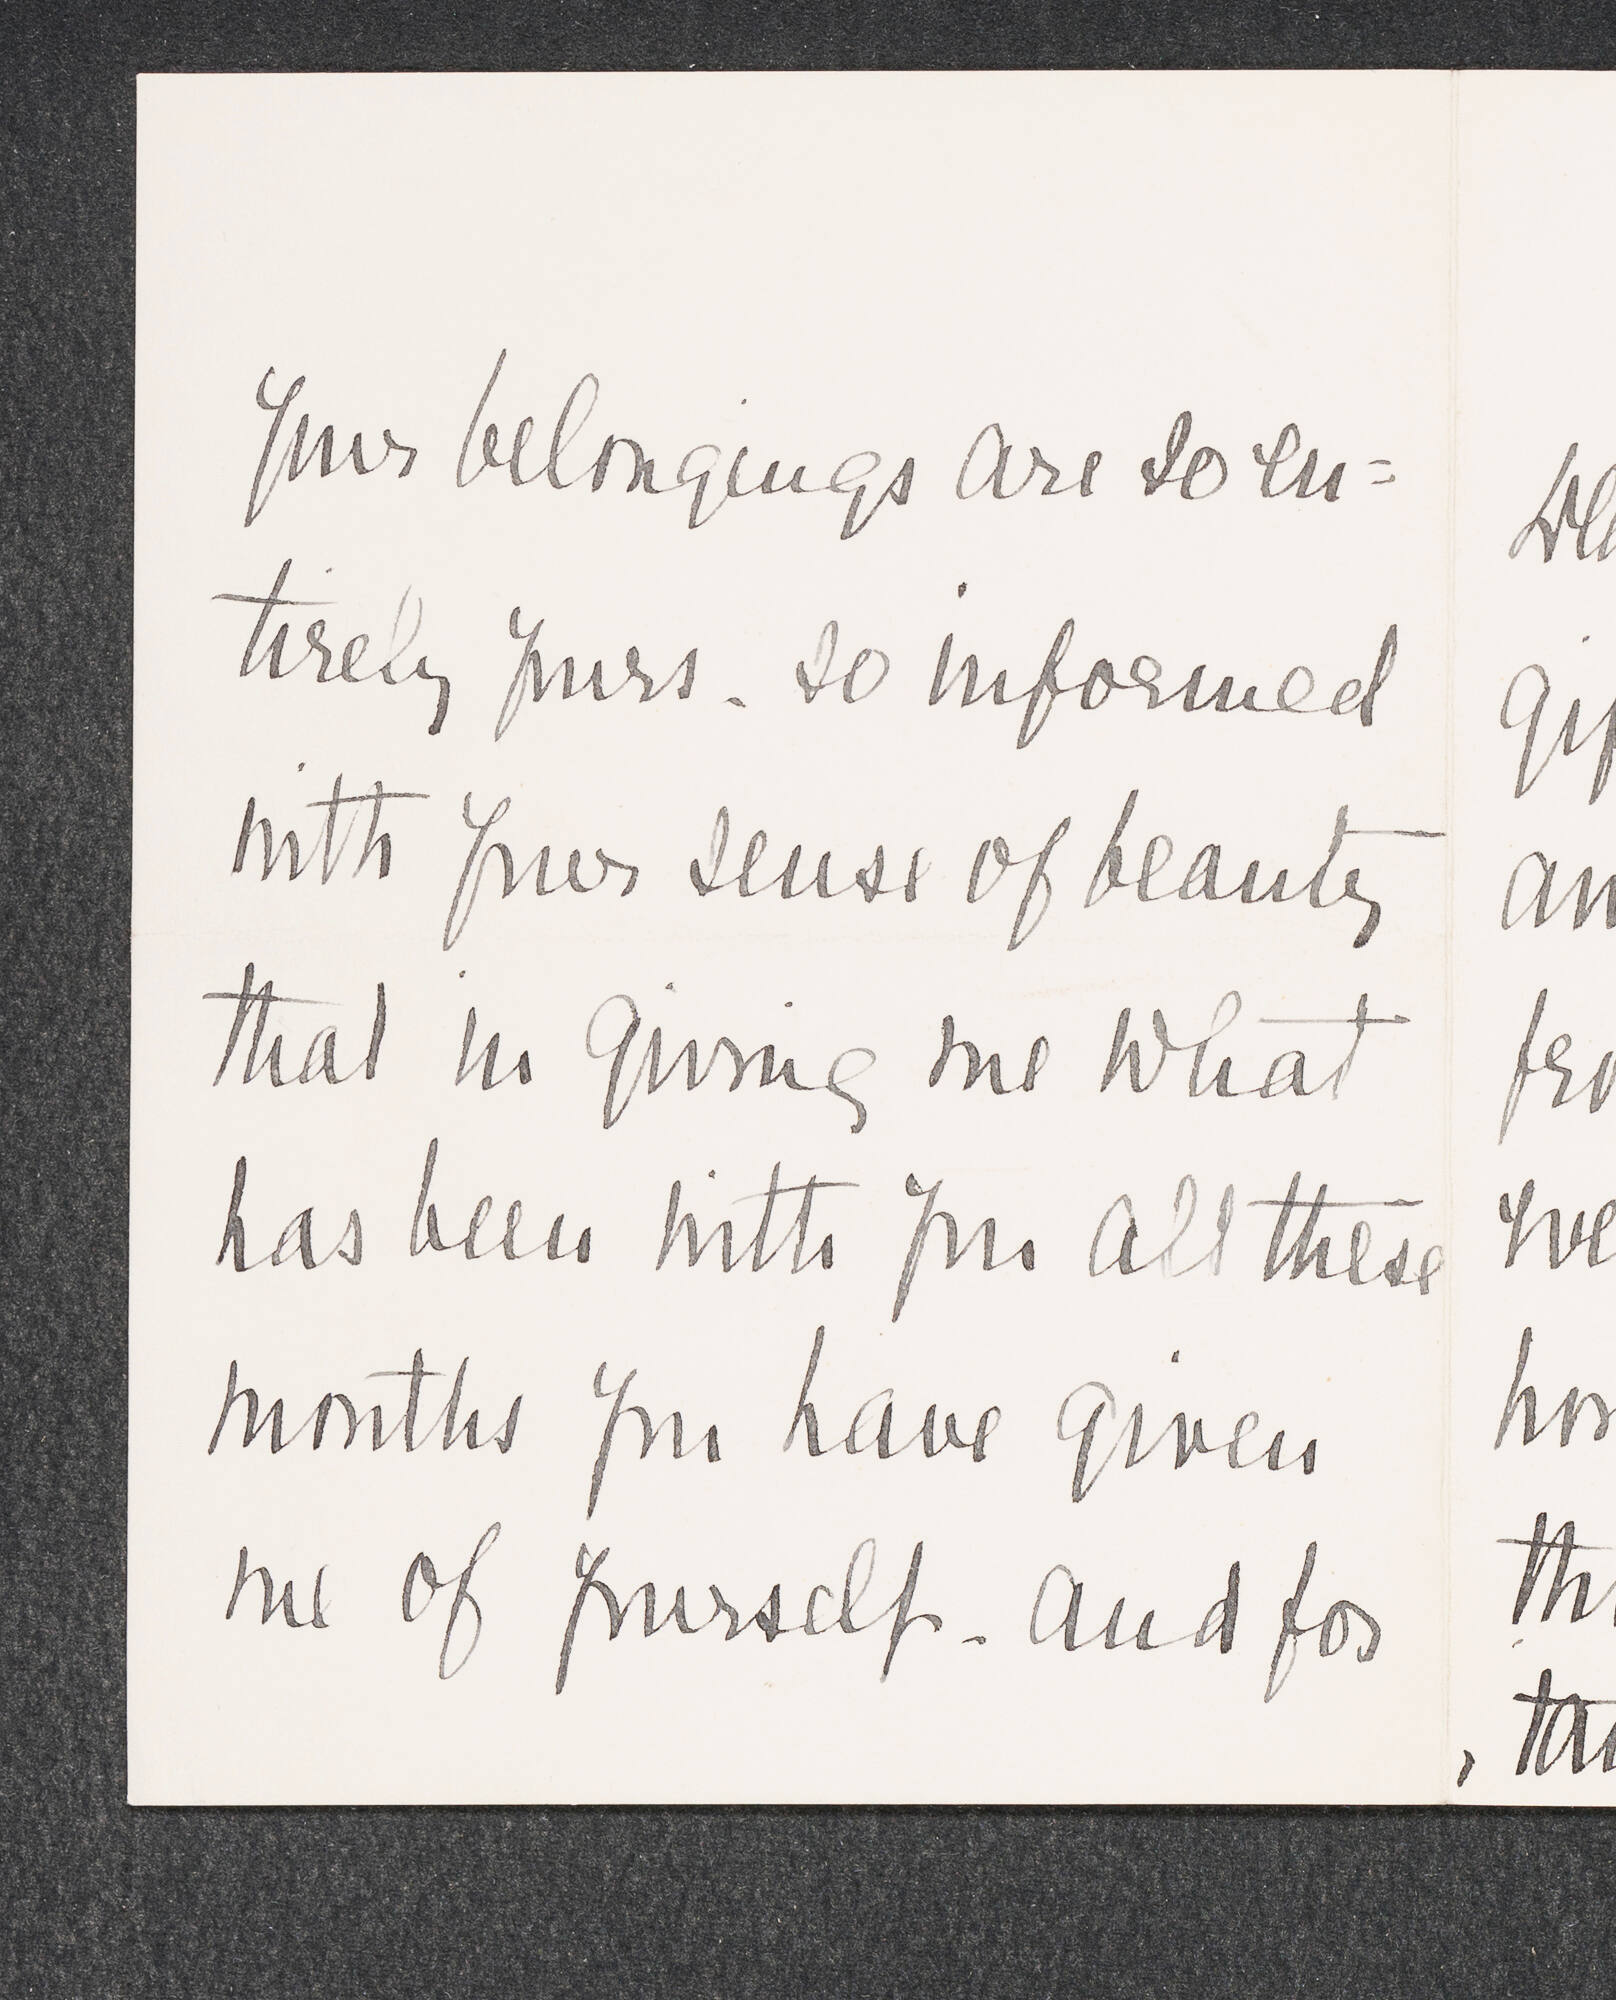 Your belongings are so en=
tirely yours - so informed
with your sense of beauty
that in giving me what
has been with you all these
months you have given
me of yourself - and for